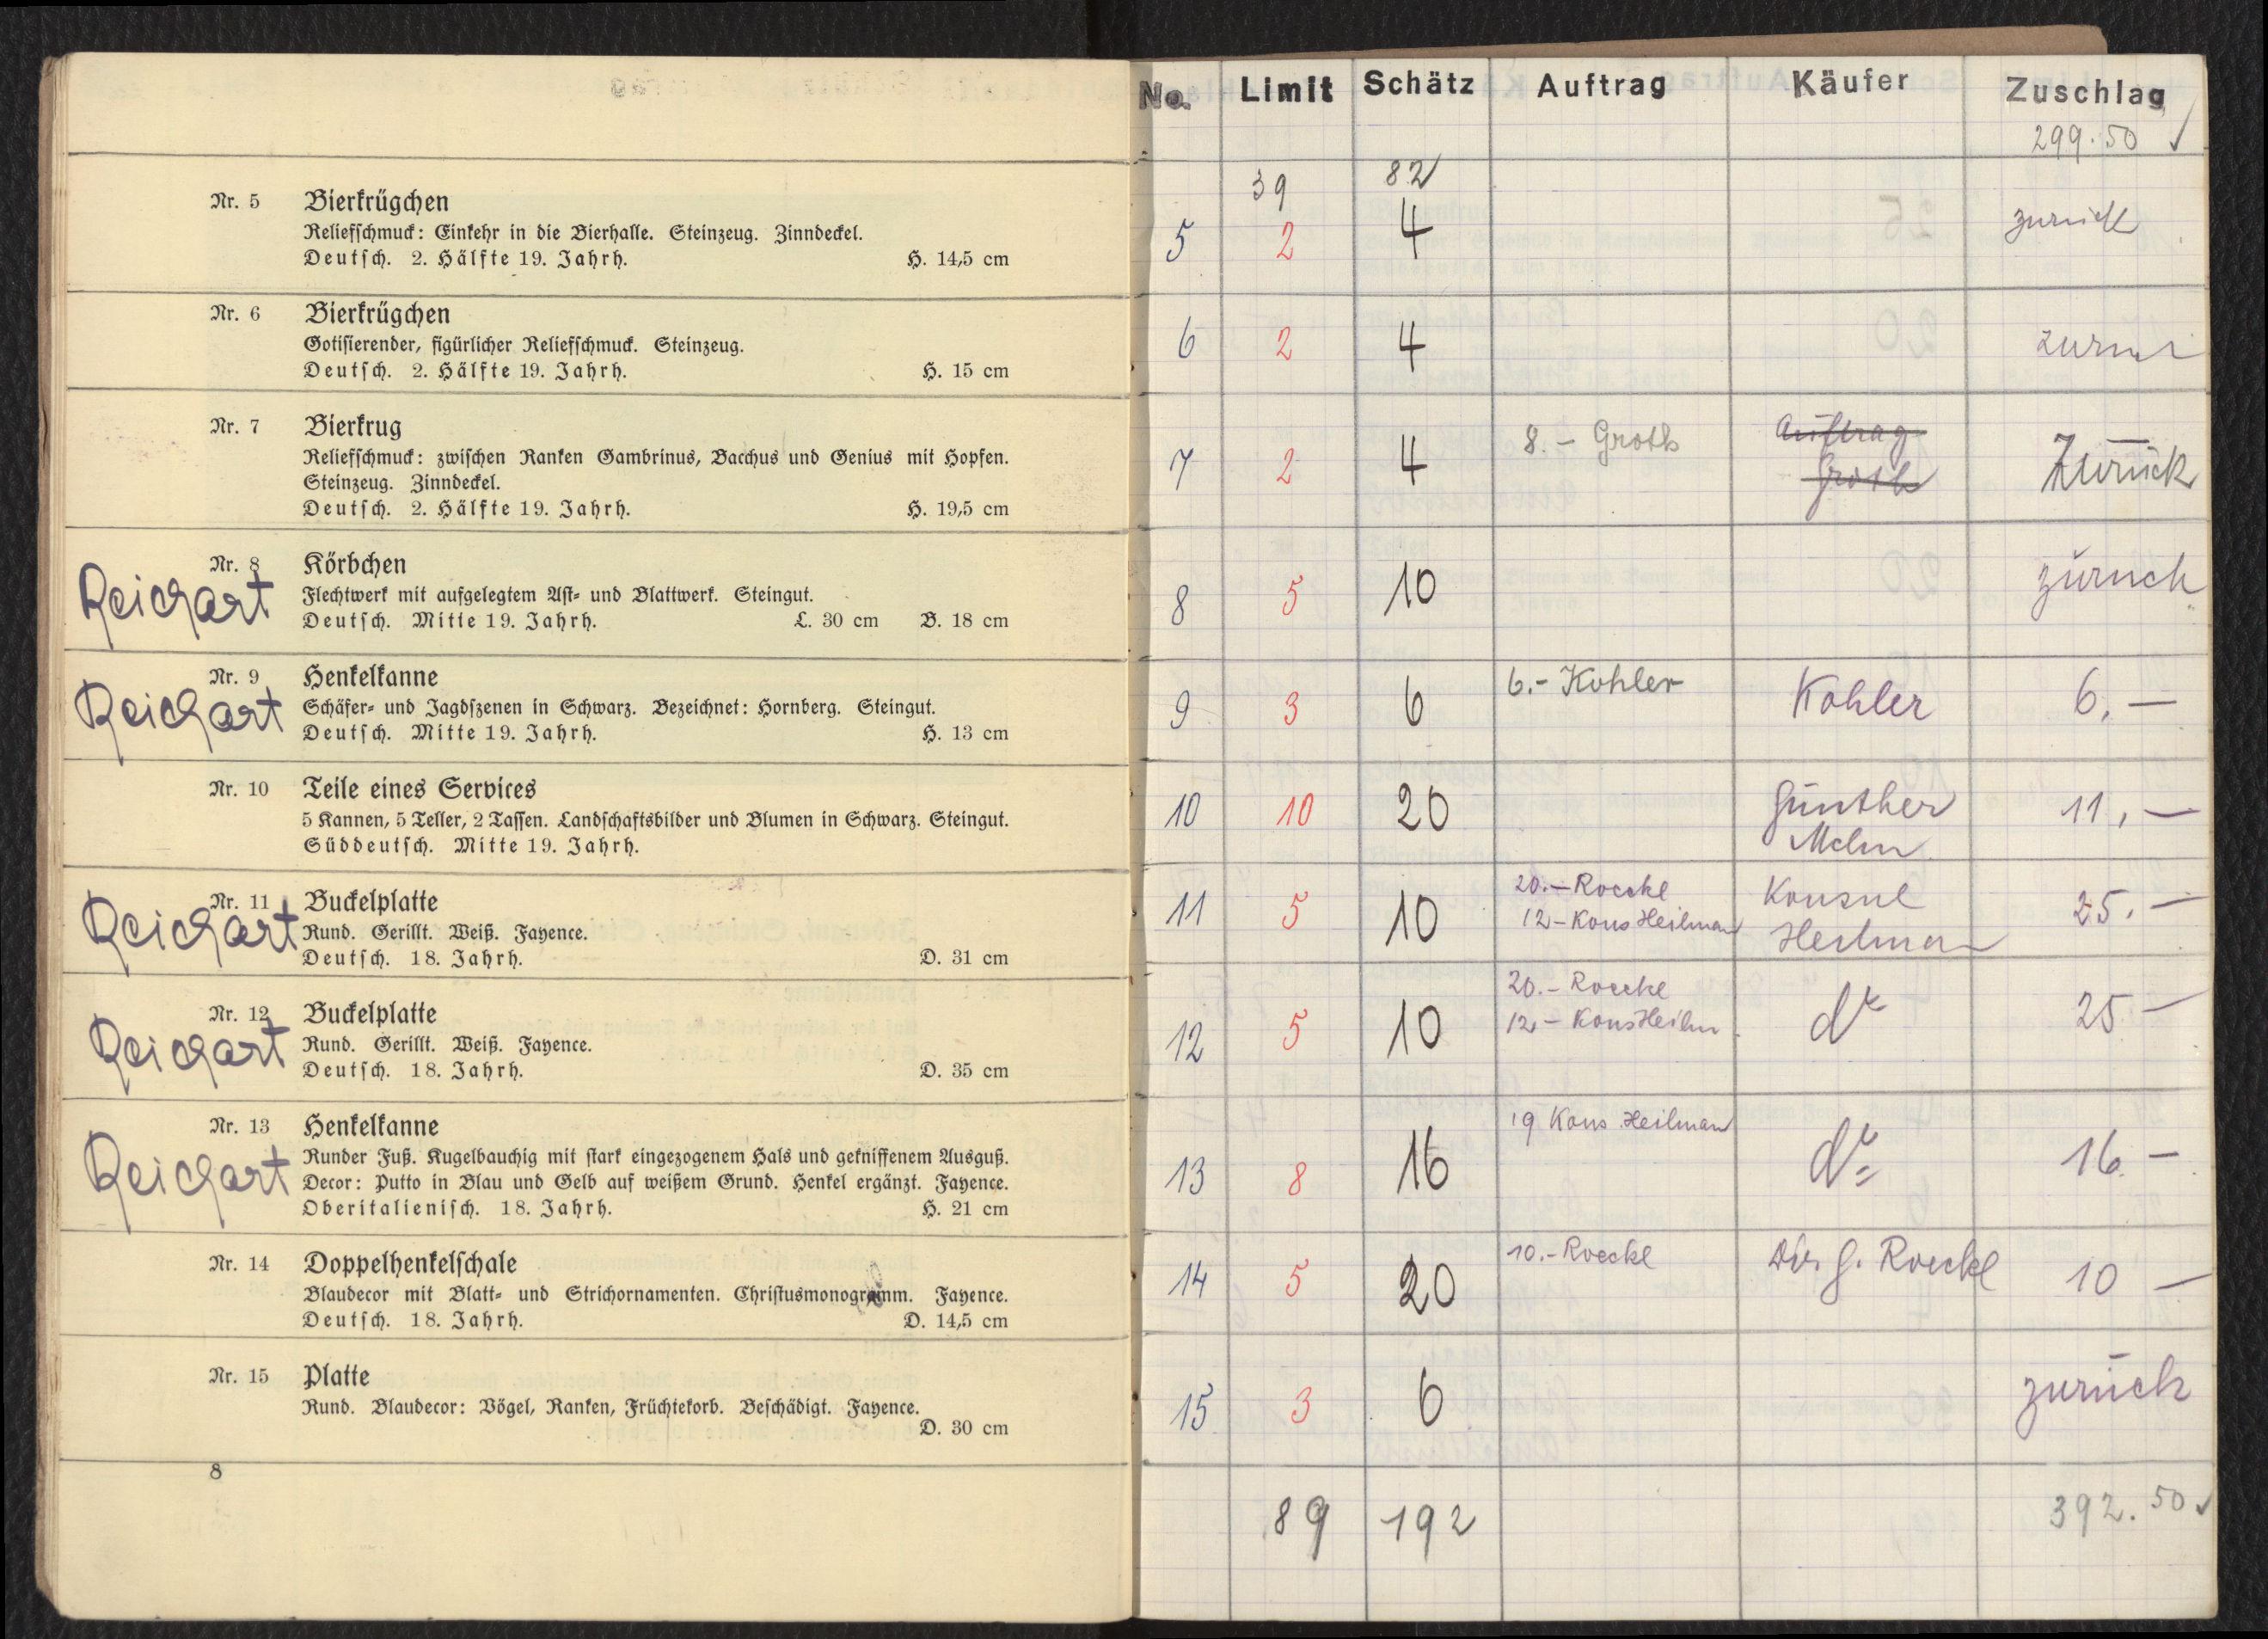 Nr. 5 Bierkrügchen
Reliefschmuck: Einkehr in die Bierhalle. Steinzeug. Zinndeckel.
Deutsch. 2. Hälfte 19. Jahrh. H. 14,5 cm
Nr. 6 Bierkrügchen
Gotisierender, figürlicher Reliefschmuck. Steinzeug.
Deutsch. 2. Hälfte 19. Jahrh. H. 15 cm
Nr. 7 Bierkrug
Reliefschmuck: zwischen Ranken Gambrinus, Bacchus und Genius mit Hopfen.
Steinzeug. Zinndeckel.
Deutsch. 2. Hälfte 19. Jahrh. H. 19,5 cm
Nr. 8 Körbchen
Reichart
Flechtwerk mit aufgelegtem Ast- und Blattwerk. Steingut.
Deutsch. Mitte 19. Jahrh. L. 30 cm B. 18 cm
Nr. 9 Henkelkanne
Reichart
Schäfer- und Jagdszenen in Schwarz. Bezeichnet: Hornberg. Steingut.
Deutsch. Mitte 19. Jahrh. H. 13 cm
Nr. 10 Teile eines Services
5 Kannen, 5 Teller, 2 Tassen. Landschaftsbilder und Blumen in Schwarz. Steingut.
Süddeutsch. Mitte 19. Jahrh.
Nr. 11 Buckelplatte
Reichart
Rund. Gerillt. Weiß. Fayence.
Deutsch. 18. Jahrh. D. 31 cm
Nr. 12 Buckelplatte
Reichart
Rund. Gerillt. Weiß. Fayence.
Deutsch. 18. Jahrh. D. 35 cm
Nr. 13 Henkelkanne
Reichart
Runder Fuß. Kugelbauchig mit stark eingezogenem Hals und gekniffenem Ausguß.
Decor: Putto in Blau und Gelb auf weißem Grund. Henkel ergänzt. Fayence.
Oberitalienisch. 18. Jahrh. H. 21 cm
Nr. 14 Doppelhenkelschale
Blaudecor mit Blatt- und Strichornamenten. Christusmonogramm. Fayence.
Deutsch. 18. Jahrh. D. 14,5 cm
Nr. 15 Platte
Rund. Blaudecor: Vögel, Ranken, Früchtekorb. Beschädigt. Fayence.
D. 30 cm
8
No. Limit Schätz Auftrag Käufer Zuschlag
299.50 ✓
39 82
5 2 4 zurück
6 2 4
7 2 4 8.- Groth Auftrag Groth Zurück
8 5 10 zurück
9 3 6 6.- Kohler Kohler 6.—
10 10 20 Günther 11,—
11 5 10 20.- Roeckl Konsul 25.—
12- Kons Heilman Heilman
12 5 10 20.- Roeckl d° 25—
12.- Kons Heilm
13 8 16 19 Kons. Heilman d° 16.-
14 5 20 10.- Roeckl Dir. G. Roeckl 10 —
15 3 6 zurück
89 192 392.50 ✓